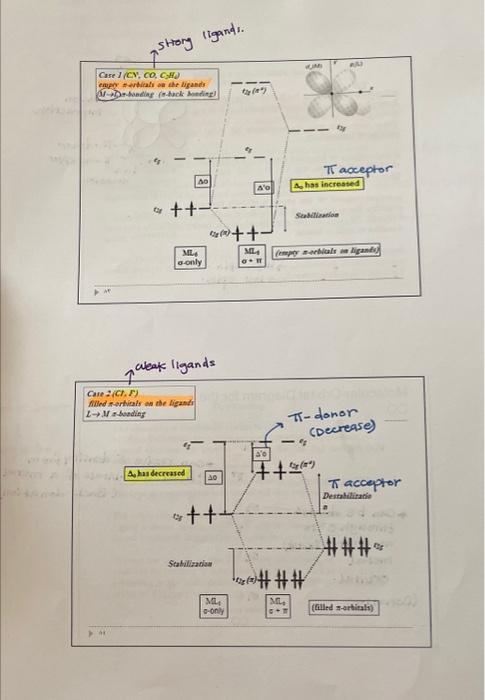 strong ligands.
Case 1 (CN, CO, C₂H₄)
empty π-orbitals on the ligands
M→L π-bonding (π-back bonding)
t₂g (π*)
t₂g
e_g
e_g
π acceptor
Δo
Δ'o
Δo has increased
t₂g
Stabilization
t₂g (π)
ML₆
σ-only
ML₆
σ + π
(empty π-orbitals on ligands)
weak ligands
Case 2 (Cl, F)
filled π-orbitals on the ligands
L→M π-bonding
π-donor
(Decrease)
e_g
e_g
Δ'o
t₂g (π*)
Δo has decreased
Δo
π acceptor
Destabilizatio
n
t₂g
t₂g
Stabilization
t₂g (π)
ML₆
σ-only
ML₆
σ + π
(filled π-orbitals)